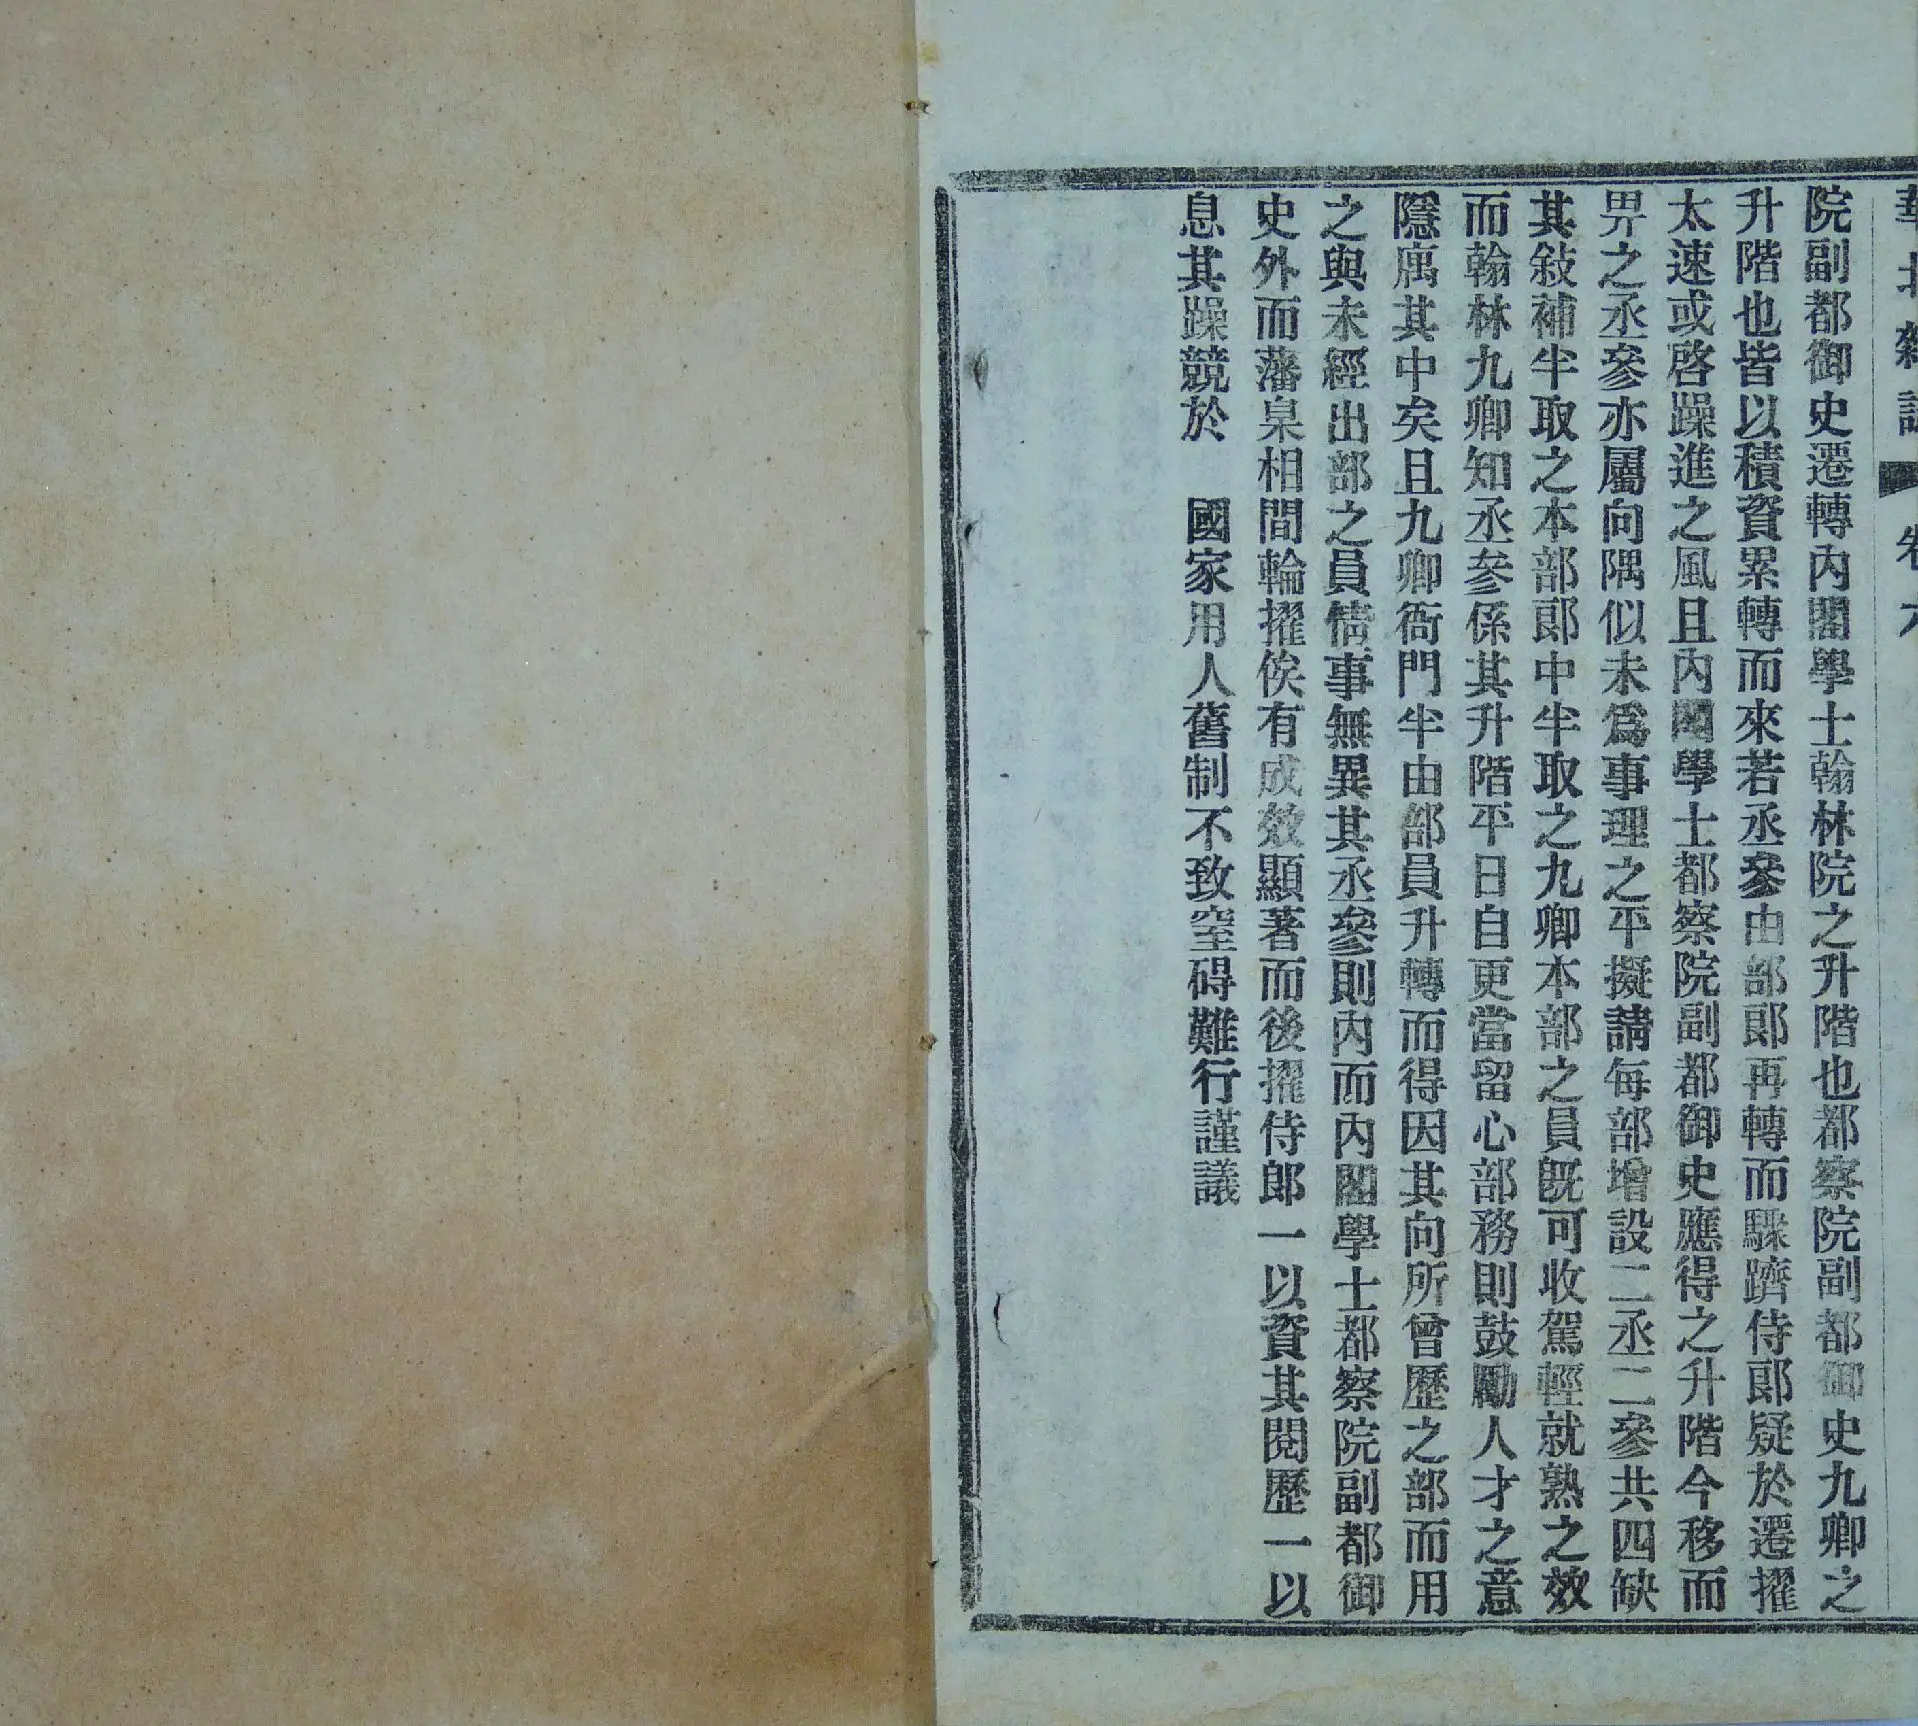 華北雜誌 卷六
院副都御史遷轉內閣學士翰林院之升階也都察院副都御史九卿之
升階也皆以積資累轉而來若丞參由部郎再轉而驟躋侍郎疑於遷擢
太速或啓躁進之風且內閣學士都察院副都御史應得之升階今移而
畀之丞參亦屬向隅似未爲事理之平擬請每部增設二丞二參共四缺
其敍補半取之本部郎中半取之九卿本部之員既可收駕輕就熟之效
而翰林九卿知丞參係其升階平日自更當留心部務則鼓勵人才之意
隱寓其中矣且九卿衙門半由部員升轉而得因其向所曾歷之部而用
之與未經出部之員情事無異其丞參則內而內閣學士都察院副都御
史外而藩臬相間輪擢俟有成效顯著而後擢侍郎一以資其閱歷一以
息其躁競於　國家用人舊制不致窒碍難行謹議